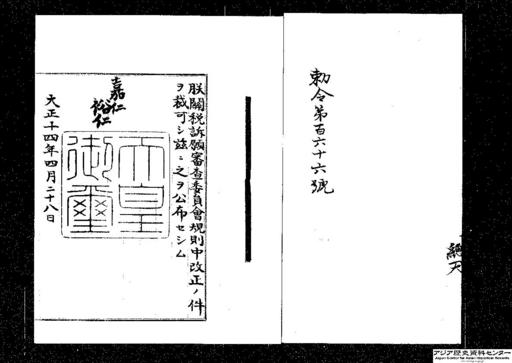 勅令第百六十六號
朕關税訴願審査委員會規則中改正ノ件
ヲ裁可シ茲ニ之ヲ公布セシム
嘉仁
裕仁
天皇御璽
大正十四年四月二十八日
アジア歴史資料センター
Japan Center for Asian Historical Records